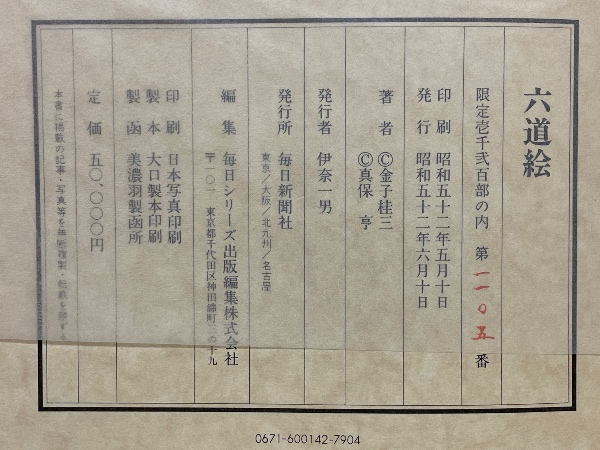 六道絵
限定壱千弐百部の内 第一一〇五番
印刷 昭和五十二年五月十日
発行 昭和五十二年六月十日
著者 ©金子桂三
©真保 亨
発行者 伊奈一男
発行所 毎日新聞社
東京/大阪/北九州/名古屋
編集 毎日シリーズ出版編集株式会社
〒一〇一 東京都千代田区神田錦町三の十九
印刷 日本写真印刷
製本 大口製本印刷
製函 美濃羽製函所
定価 五〇、〇〇〇円
本書に掲載の記事・写真等を無断複製・転載を禁ずる
0671-600142-7904